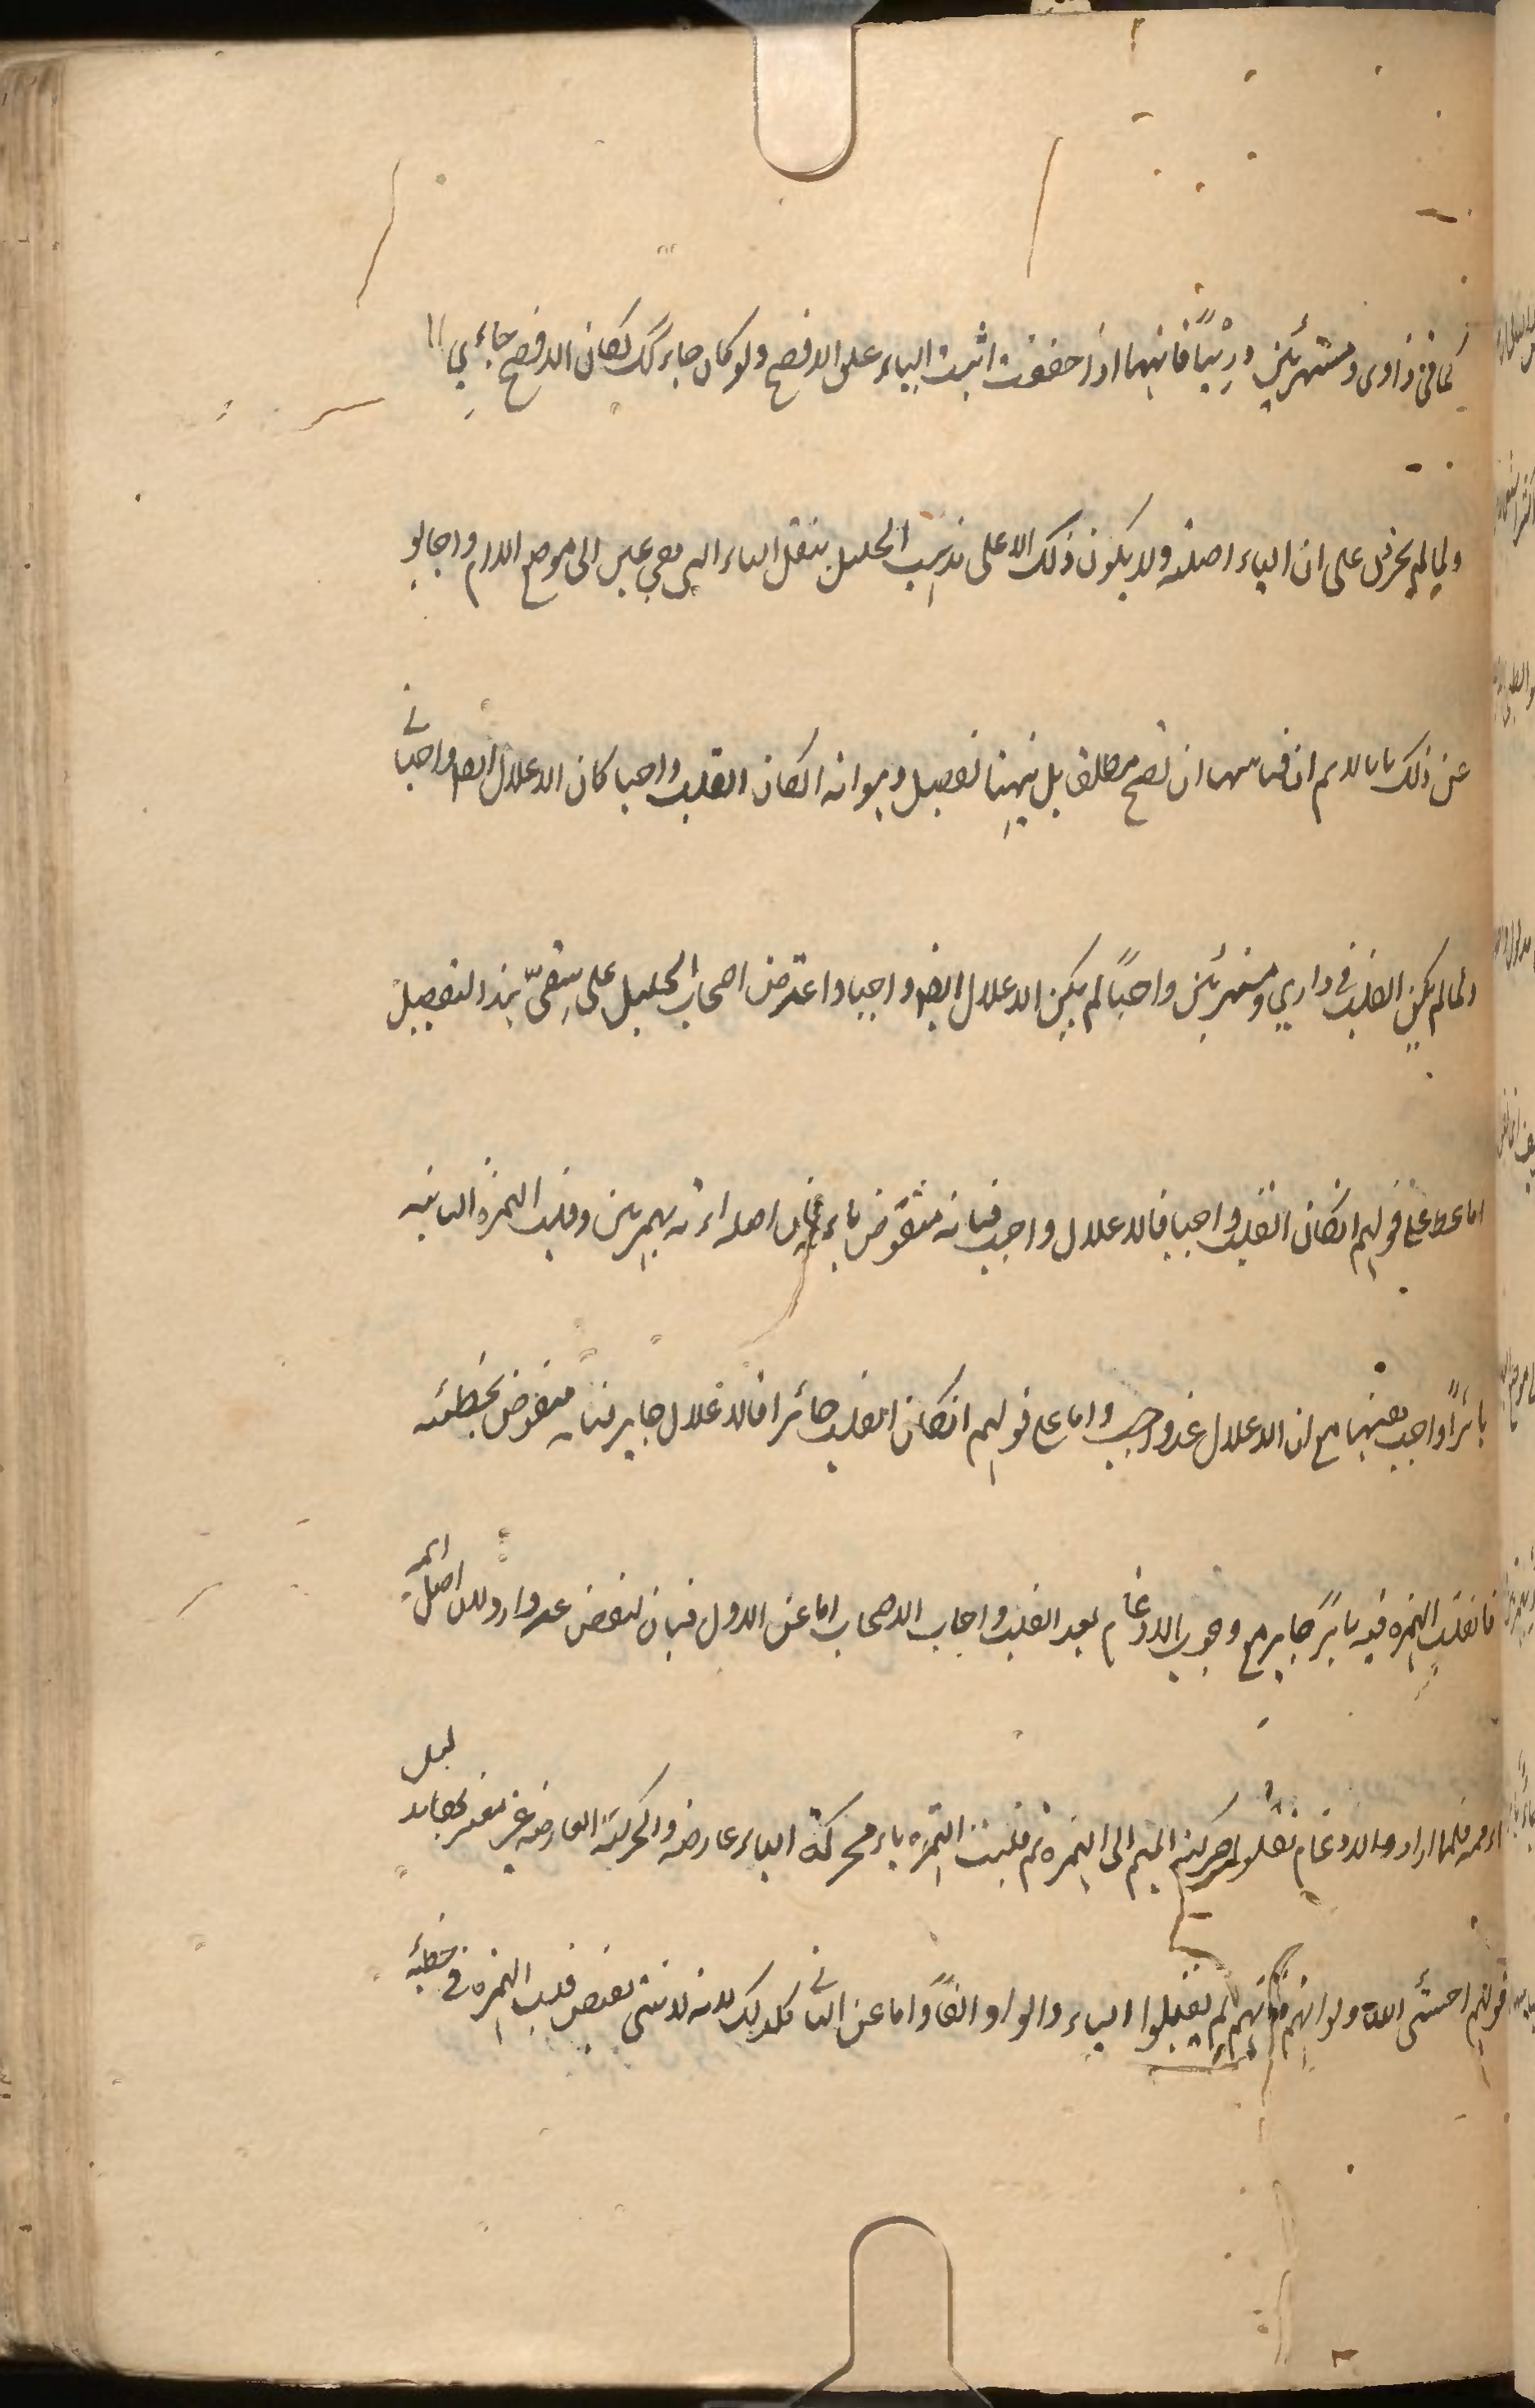 كما في داوى ومستهزئين ورئيًا فانهما اذا خففت اثبت الياء على الافصح ولو كان جاء كك لكان الافصح جائي
ولما لم يجز دل على ان الياء اصلية ولا يكون ذلك الا على مذهب الخليل بنقل الياء التي هي عين الى موضع اللام واجابوا
عن ذلك بانا لا نم ان قياسهما ان تصح مطلقا بل ههنا تفصيل وهو انه انكان القلب واجبا كان الاعلال ايضا واجبا
ولما لم يكن القلب في داري ومستهزئين واجبًا لم يكن الاعلال ايضا واجبا واعترض اصحاب الخليل على هذا التفصيل
اما على قولهم انكان القلب واجبا فالاعلال واجب فبانه منقوض بايمة فان اصله اءمة بهمزتين وقلب الهمزة الثانية
ياءً واجب فيها مع ان الاعلال غير واجب واما على قولهم انكان القلب جائزا فالاعلال جايز فبانه منقوض بخطيئة
فان قلب الهمزة فيه ياءً جايز مع وجوب الادغام بعد القلب واجاب الاصحاب اما عن الاول فبان النقض غير وارد لان اصل ايمة
اءممة فلما ارادوا الادغام نقلوا حركة الميم الى الهمزة ثم قلبت الهمزة ياء فحركة الياء عارضة والحركة العارضة غير معتبر بدليل
قولهم اخشى الله ولو انهم فانهم لم يقلبوا الياء والواو الفًا واما عن الثاني فكذلك لانه لا شئ يقتضي قلب الهمزة في خطيئة